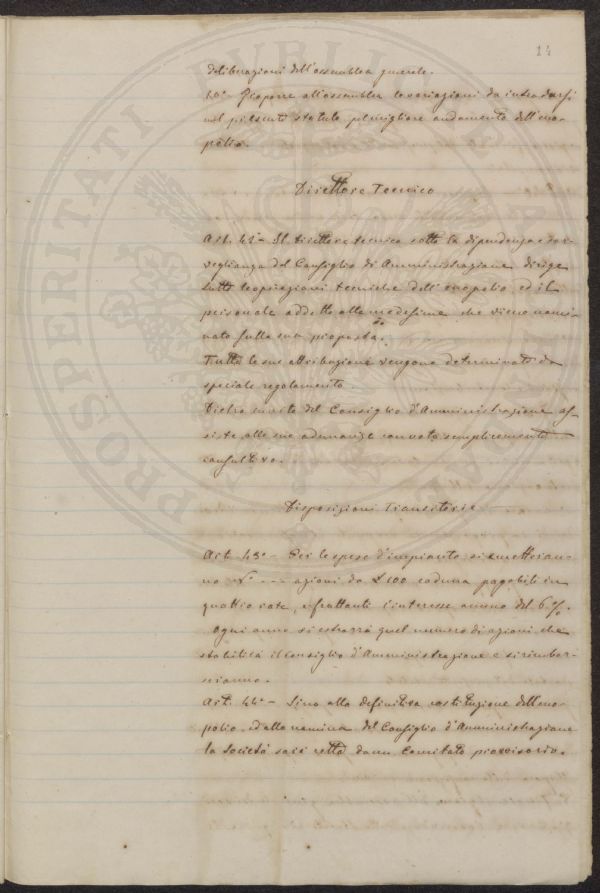 14
deliberazioni dell'assemblea generale.
10° Proporre all'assemblea le variazioni da introdursi
nel presente statuto pel migliore andamento dell'eno-
polio.
Direttore Tecnico
Art. 42° - Il direttore tecnico sotto la dipendenza e sor-
veglianza del Consiglio di Amministrazione dirige
tutte le operazioni tecniche dell'enopolio, ed il
personale addetto alle medesime che viene nomi-
nato sulla sua proposta.
Tutte le sue attribuzioni vengono determinate da
speciale regolamento.
Dietro invito del Consiglio d'Amministrazione as-
siste alle sue adunanze con voto semplicemente
consultivo.
Disposizioni Transitorie
Art. 43° - Per le spese d'impianto si emetteran-
no N° --- azioni da £ 100 caduna pagabili in
quattro rate, e fruttanti l'interesse annuo del 6 %.
Ogni anno si estrarrà quel numero di azioni che
stabilirà il Consiglio d'Amministrazione e si rimbor-
seranno.
Art. 44° - Sino alla definitiva costituzione dell'eno-
polio, ed alla nomina del Consiglio d'Amministrazione
la Società sarà retta da un Comitato provvisorio.
PROSPERITATI PUBLICAE